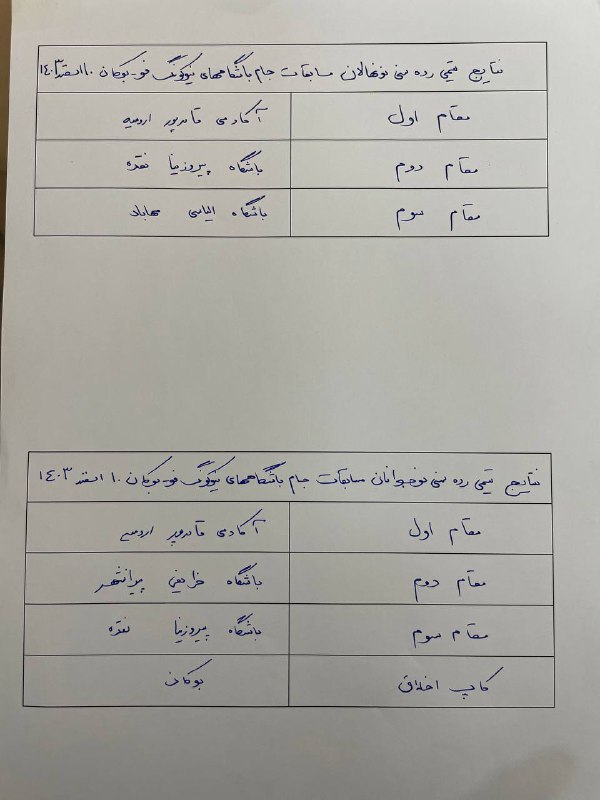 نتایج تیمی رده سنی نونهالان مسابقات جام باشگاههای کیوکونگ فو - بوکان ۱۰ اسفند ۱۴۰۳
مقام اول آکادمی قادرپور ارومیه
مقام دوم باشگاه پیروزنیا نقده
مقام سوم باشگاه الیاسی مهاباد
نتایج تیمی رده سنی نوجوانان مسابقات جام باشگاههای کیوکونگ فو - بوکان ۱۰ اسفند ۱۴۰۳
مقام اول آکادمی قادرپور ارومیه
مقام دوم باشگاه پیرانشهر
مقام سوم باشگاه پیروزنیا نقده
کاپ اخلاق بوکان